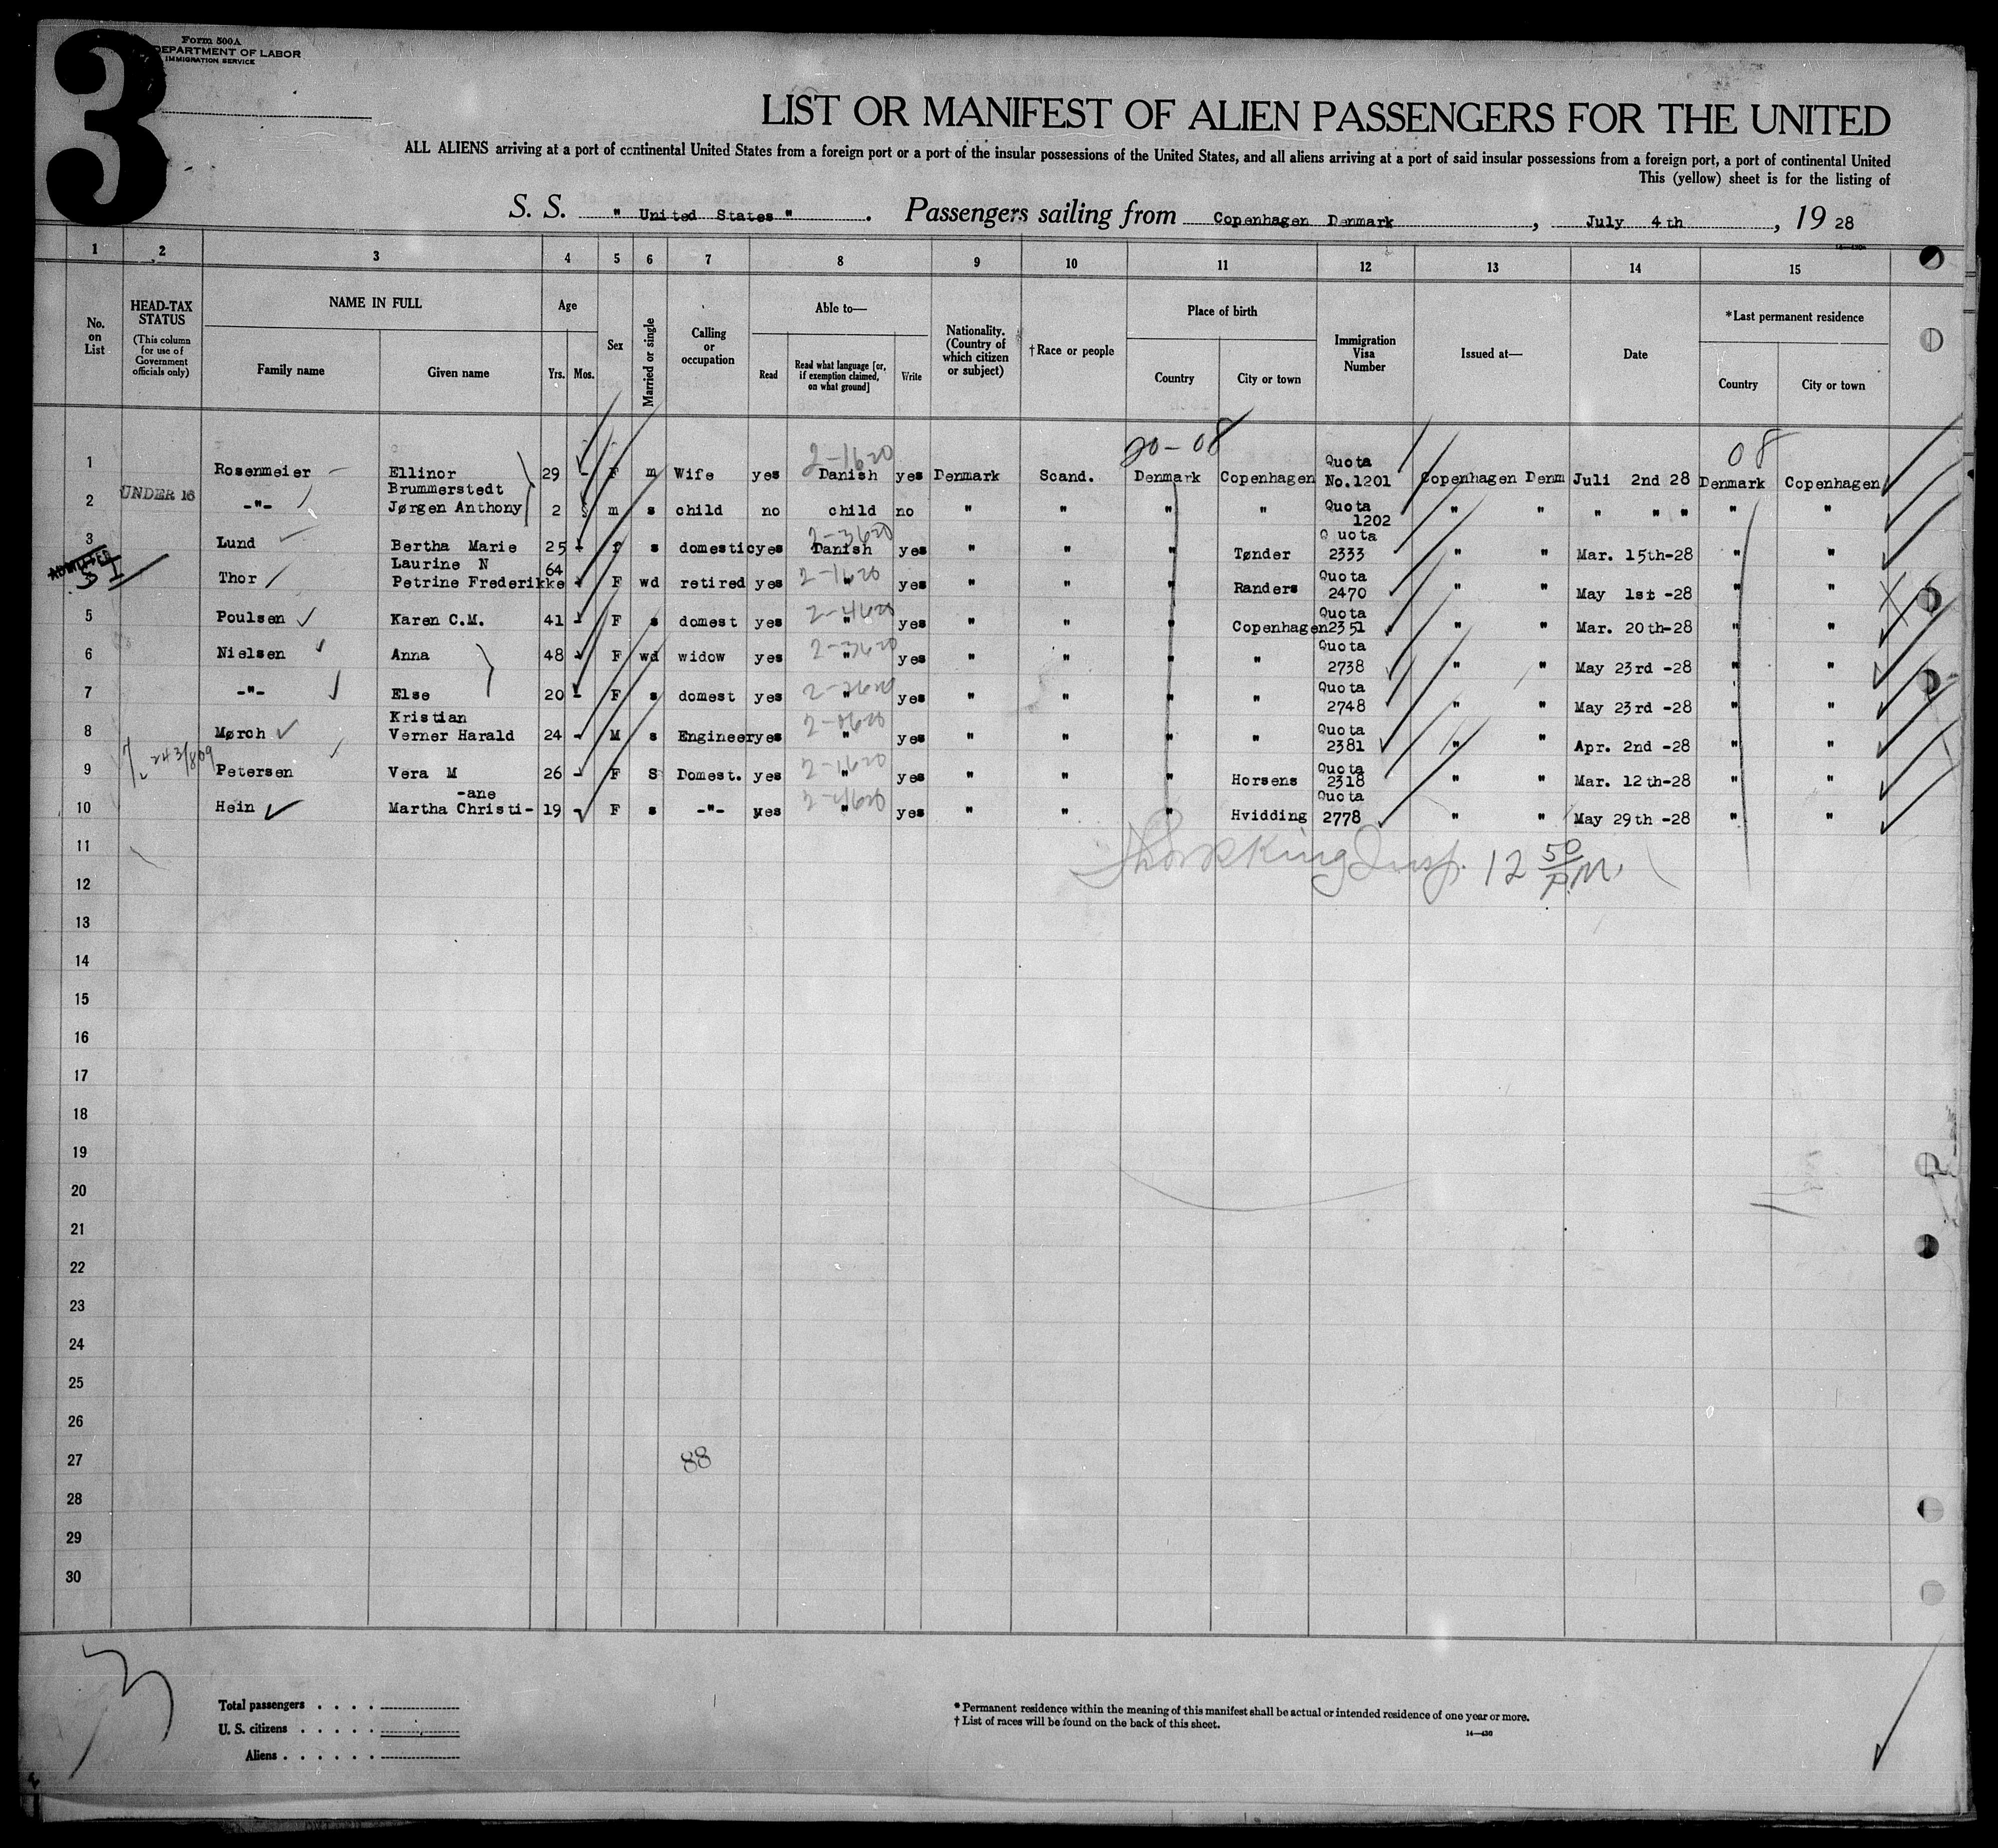 3
Form 500A
DEPARTMENT OF LABOR
IMMIGRATION SERVICE
LIST OR MANIFEST OF ALIEN PASSENGERS FOR THE UNITED
ALL ALIENS arriving at a port of continental United States from a foreign port or a port of the insular possessions of the United States, and all aliens arriving at a port of said insular possessions from a foreign port, a port of continental United
This (yellow) sheet is for the listing of
S. S. " United States " . Passengers sailing from Copenhagen Denmark , July 4th , 19 28
1 2 3 4 5 6 7 8 9 10 11 12 13 14 15
No. on List
HEAD-TAX STATUS
(This column for use of Government officials only)
NAME IN FULL
Family name
Given name
Age
Yrs. Mos.
Sex
Married or single
Calling or occupation
Able to—
Read
Read what language [or, if exemption claimed, on what ground]
Write
Nationality. (Country of which citizen or subject)
†Race or people
Place of birth
Country
City or town
Immigration Visa Number
Issued at—
Date
*Last permanent residence
Country
City or town
20-08
08
1 Rosenmeier Ellinor Brummerstedt 29 - F m Wife yes 2-1620 Danish yes Denmark Scand. Denmark Copenhagen Quota No.1201 Copenhagen Denm Juli 2nd 28 Denmark Copenhagen
2 UNDER 16 -"- Jørgen Anthony 2 m s child no child no " " " " Quota 1202 " " " " " " "
3 Lund Bertha Marie 25 - s domestic yes 2-3620 Danish yes " " " Tønder Quota 2333 " " Mar. 15th-28 " "
ADMITTED
SI Thor Laurine N Petrine Frederikke 64 F wd retired yes 2-1620 " yes " " " Randers Quota 2470 " " May 1st -28 " "
5 Poulsen Karen C.M. 41 - F s domest yes 2-4620 " yes " " " Copenhagen Quota 2351 " " Mar. 20th-28 " "
6 Nielsen Anna 48 F wd widow yes " yes " " " " Quota 2738 " " May 23rd -28 " "
7 -"- Else 20 - F s domest yes " yes " " " " Quota 2748 " " May 23rd -28 " "
8 Mørch Kristian Verner Harald 24 - M s Engineer yes " yes " " " " Quota 2381 " " Apr. 2nd -28 " "
9 Petersen Vera M 26 - F S Domest. yes 2-1620 " yes " " " Horsens Quota 2318 " " Mar. 12th-28 " "
10 Hein Martha Christi-ane 19 F s -"- yes " yes " " " Hvidding Quota 2778 " " May 29th -28 " "
11
Insp. 12 50 P.M.
12
13
14
15
16
17
18
19
20
21
22
23
24
25
26
27 88
28
29
30
Total passengers . . . .
U. S. citizens . . . . .
Aliens . . . . . .
* Permanent residence within the meaning of this manifest shall be actual or intended residence of one year or more.
† List of races will be found on the back of this sheet.
14—430